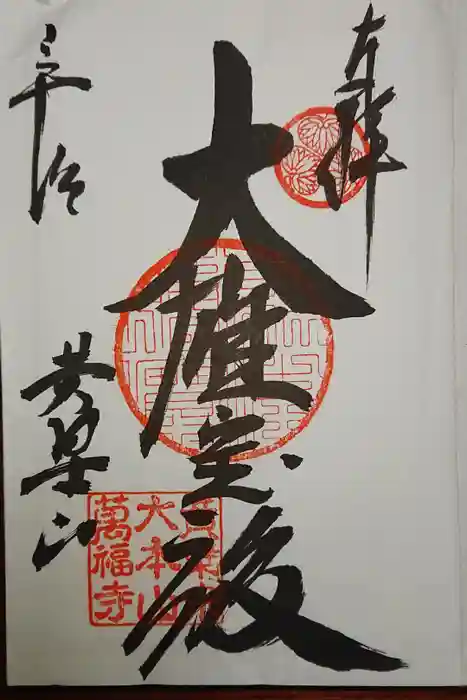 奉拝
大雄宝殿
宇治
黄檗山
黄檗山
大本山
萬福寺